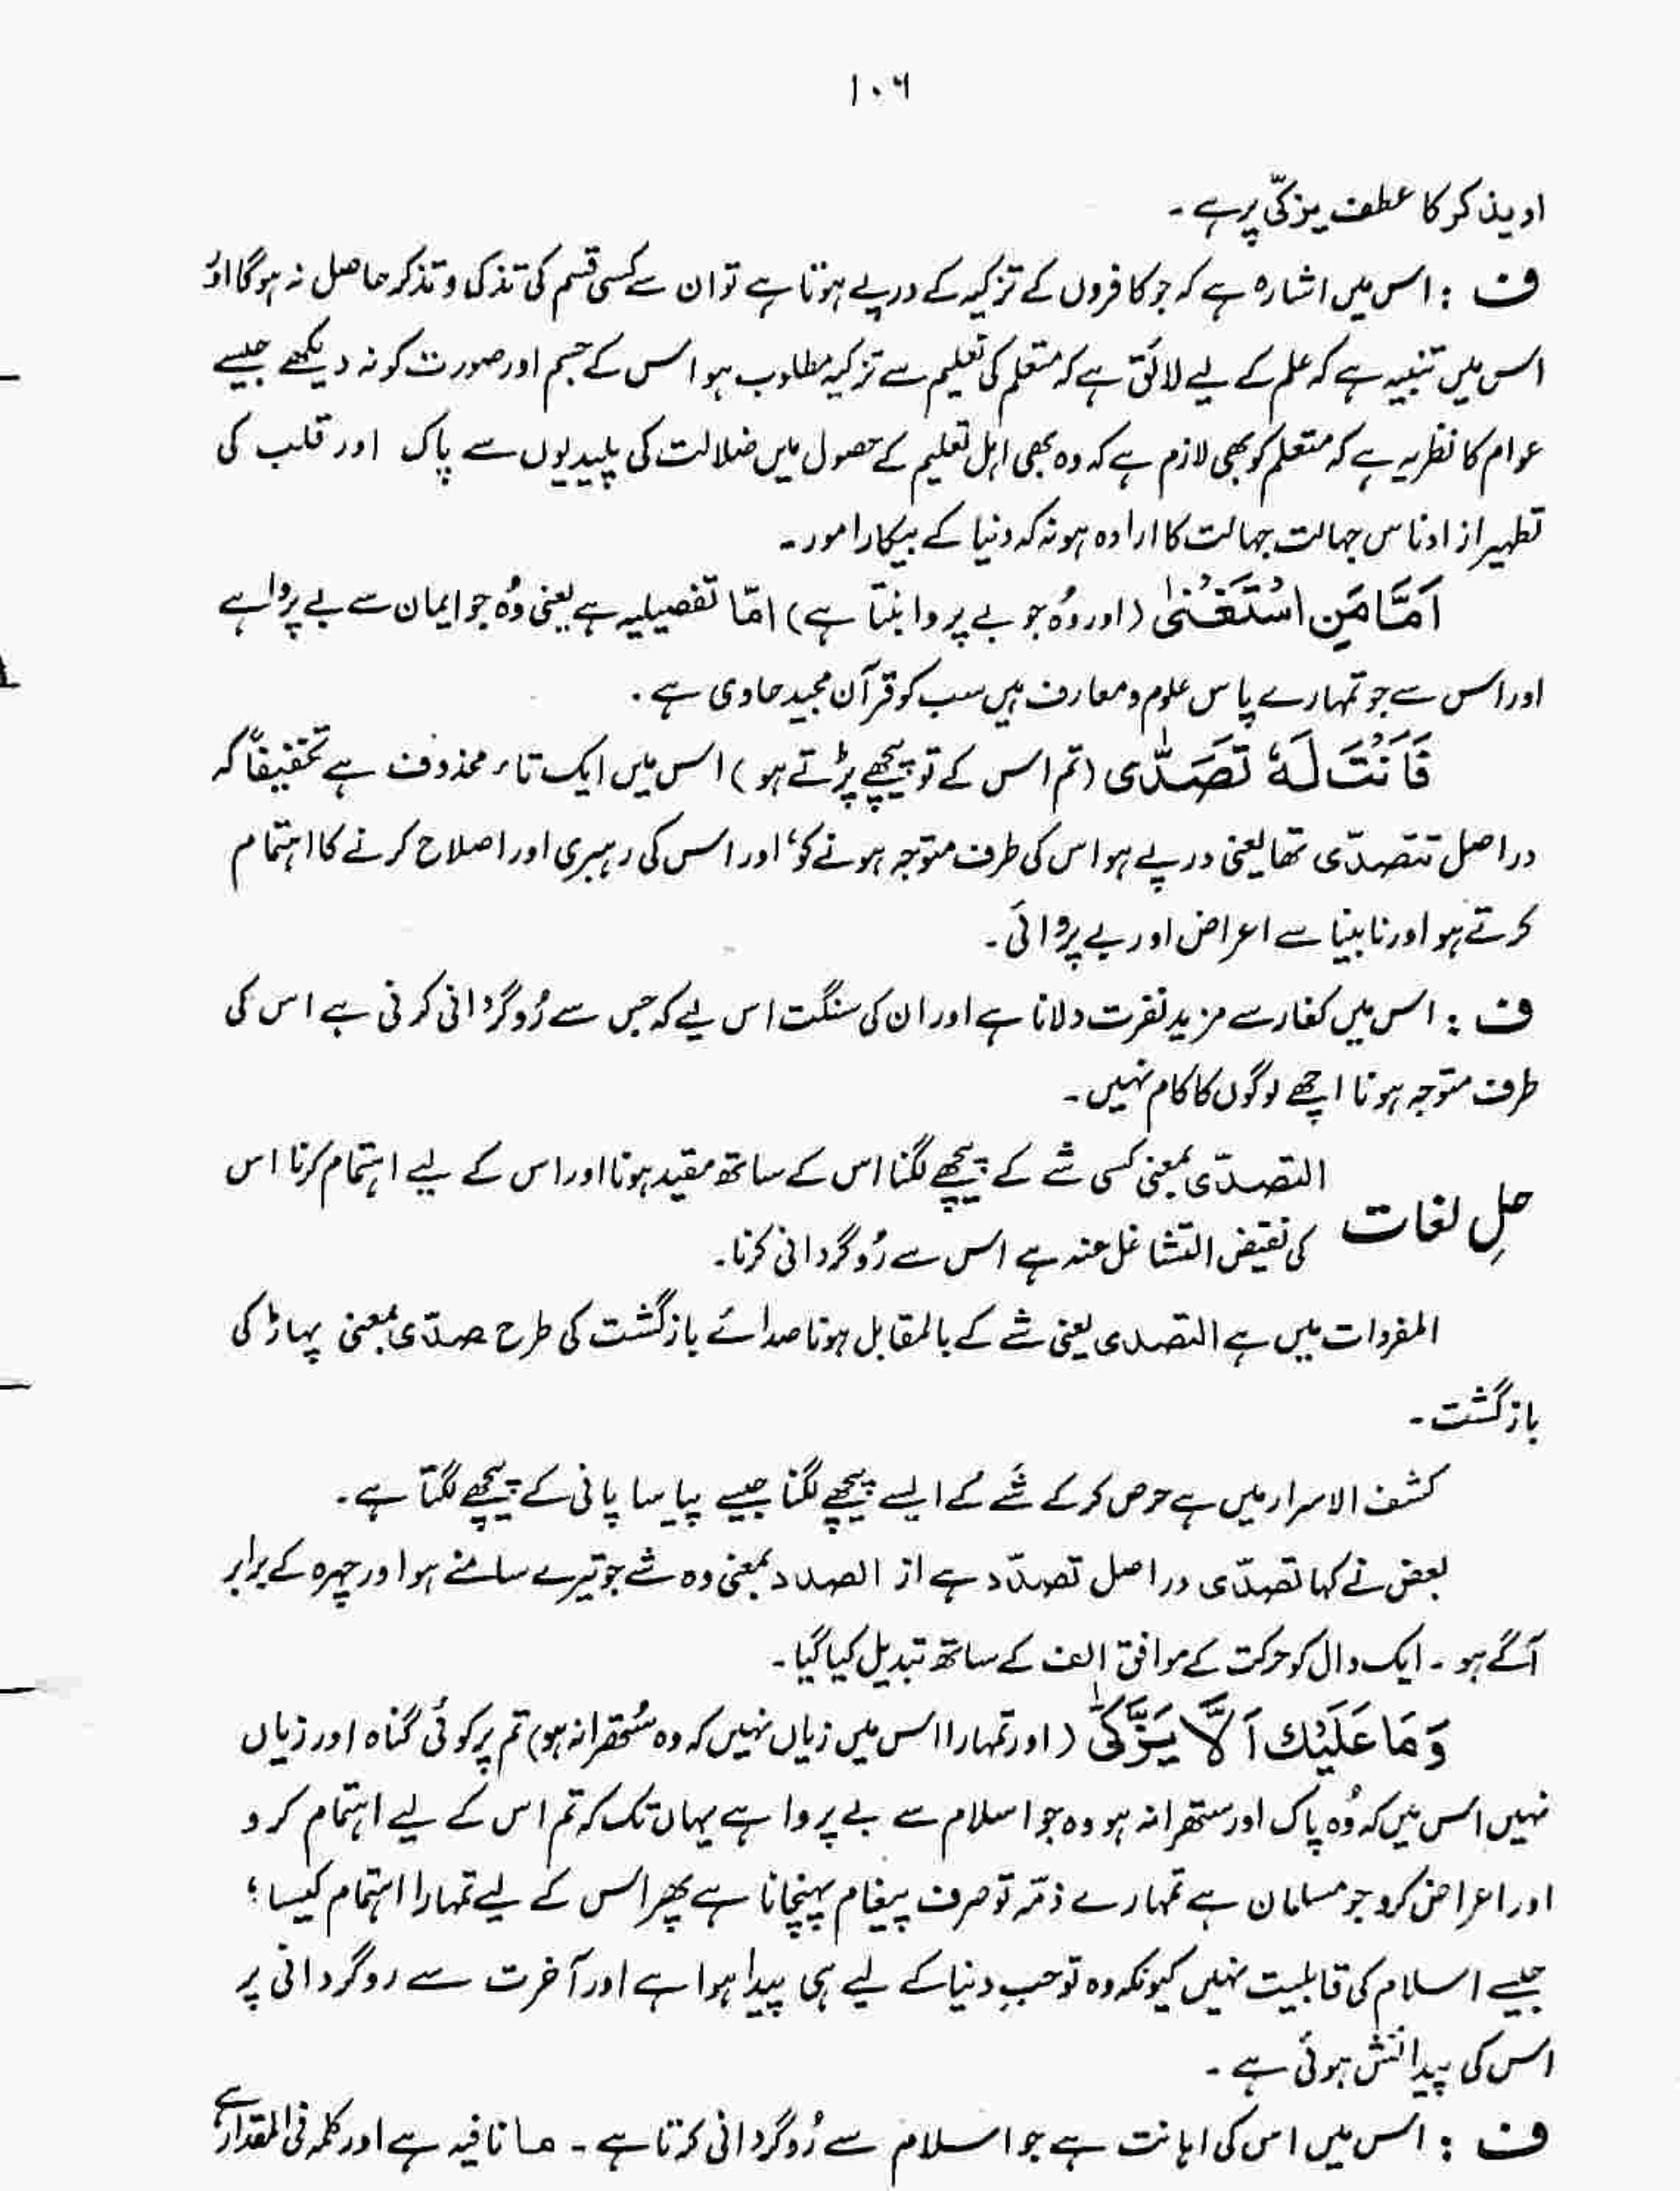 ۱۰۶
او یذکر کا عطف یزکّی پر ہے ۔
ف : اس میں اشارہ ہے کہ جو کافروں کے تزکیہ کے درپے ہوتا ہے تو ان سے کسی قسم کی تذکی و تذکر حاصل نہ ہوگا اور
اس میں تنبیہ ہے کہ علم کے لیے لائق ہے کہ متعلم کی تعلیم سے تزکیہ مطلوب ہو اس کے جسم اور صورت کو نہ دیکھے جیسے
عوام کا نظریہ ہے کہ متعلم کو بھی لازم ہے کہ وہ بھی اہل تعلیم کے حصول میں ضلالت کی پلیدیوں سے پاک اور قلب کی
تطہیر از ادناس جہالت جہالت کا ارادہ ہو نہ کہ دنیا کے بیکار امور ۔
اَمَّا مَنِ اسْتَغْنٰى (اور وُہ جو بے پروا بنتا ہے) امّا تفصیلیہ ہے یعنی وُہ جو ایمان سے بے پروا ہے
اور اس سے جو تمہارے پاس علوم و معارف ہیں سب کو قرآن مجید حاوی ہے ۔
فَاَنْتَ لَهٗ تَصَدّٰى (تم اس کے تو پیچھے پڑتے ہو) اس میں ایک تاء محذوف ہے تخفیفاً کہ
دراصل تتصدّی تھا یعنی درپے ہو اس کی طرف متوجہ ہونے کو، اور اس کی رہبری اور اصلاح کرنے کا اہتمام
کرتے ہو اور نابینا سے اعراض اور بے پروائی ۔
ف : اس میں کفار سے مزید نفرت دلانا ہے اور ان کی سنگت اس لیے کہ جس سے رُوگردانی کرنی ہے اس کی
طرف متوجہ ہونا اچھے لوگوں کا کام نہیں ۔
التصدّی بمعنی کسی شے کے پیچھے لگنا اس کے ساتھ مقید ہونا اور اس کے لیے اہتمام کرنا اس
حلِ لغات کی نقیض التشاغل عنہ ہے اس سے رُوگردانی کرنا ۔
المفردات میں ہے التصدی یعنی شے کے بالمقابل ہونا صدائے بازگشت کی طرح صدّی بمعنی پہاڑ کی
بازگشت ۔
کشف الاسرار میں ہے حرص کر کے شَے کے ایسے پیچھے لگنا جیسے پیاسا پانی کے پیچھے لگتا ہے ۔
بعض نے کہا تصدّی دراصل تصدّد ہے از الصدد بمعنی وہ شے جو تیرے سامنے ہو اور چہرہ کے برابر
آگے ہو ۔ ایک دال کو حرکت کے موافق الف کے ساتھ تبدیل کیا گیا ۔
وَمَا عَلَيْكَ اَلَّا يَزَّكّٰى (اور تمہارا اس میں زیاں نہیں کہ وہ سُتھرا نہ ہو) تم پر کوئی گناہ اور زیاں
نہیں اس میں کہ وُہ پاک اور ستھرا نہ ہو وہ جو اسلام سے بے پروا ہے یہاں تک کہ تم اس کے لیے اہتمام کرو
اور اعراض کرو جو مسلمان ہے تمہارے ذمّہ تو صرف پیغام پہنچانا ہے پھر اس کے لیے تمہارا اہتمام کیسا ؛
جیسے اسلام کی قابلیت نہیں کیونکہ وہ تو حبِ دنیا کے لیے ہی پیدا ہوا ہے اور آخرت سے روگردانی پر
اس کی پیدائش ہوئی ہے ۔
ف : اس میں اس کی اہانت ہے جو اسلام سے رُوگردانی کرتا ہے ۔ ما نافیہ ہے اور کلمہ فی المقدار ہے